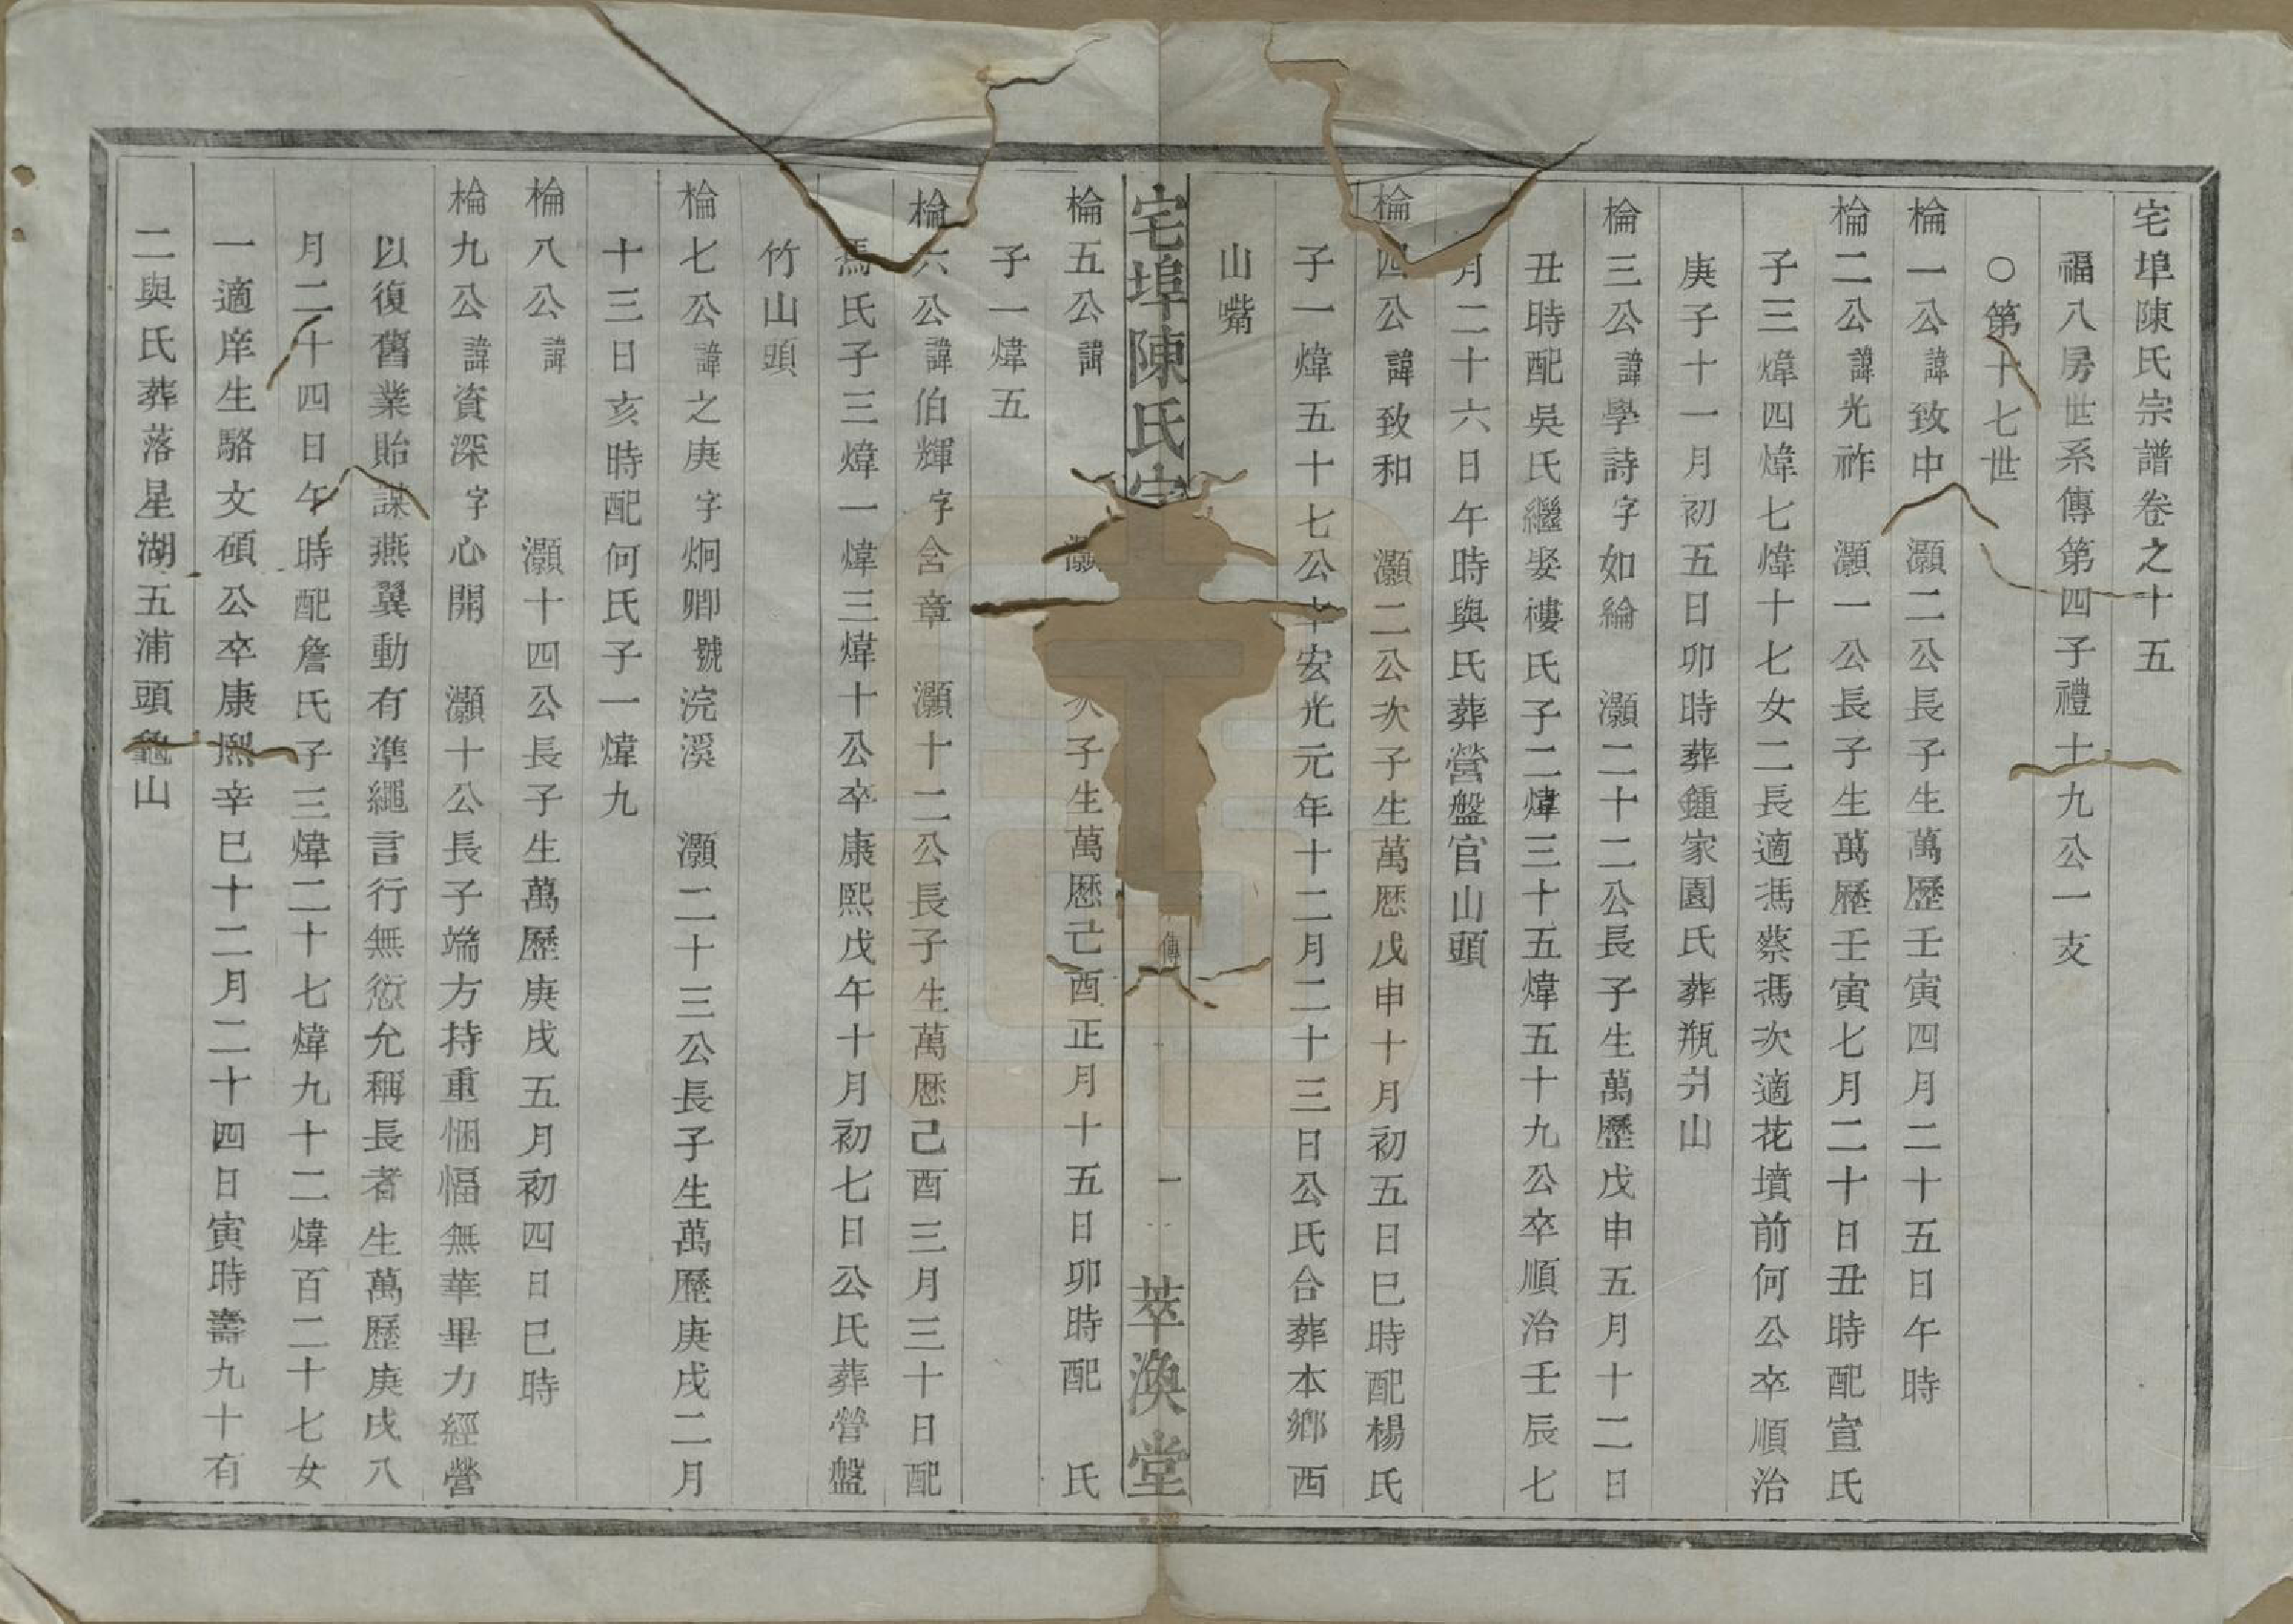 宅埠陳氏宗譜卷之十五
福八房世系傳第四子禮十九公一支
○第十七世
棆一公諱致中　灝二公長子生萬歷壬寅四月二十五日午時
棆二公諱光祚　灝一公長子生萬歷壬寅七月二十日丑時配宣氏
子三煒四煒七煒十七女二長適馮蔡馮次適花墳前何公卒順治
庚子十一月初五日卯時葬鍾家園氏葬瓶爿山
棆三公諱學詩字如綸　灝二十二公長子生萬歷戊申五月十二日
丑時配吳氏繼娶褸氏子二煒三十五煒五十九公卒順治壬辰七
月二十六日午時與氏葬營盤官山頭
棆四公諱致和　灝二公次子生萬歷戊申十月初五日巳時配楊氏
子一煒五十七公卒宏光元年十二月二十三日公氏合葬本鄉西
山嘴
宅埠陳氏宗　傳　一　萃渙堂
棆五公諱　灝　次子生萬歷己酉正月十五日卯時配　氏
子一煒五
棆六公諱伯輝字含章　灝十二公長子生萬歷己酉三月三十日配
馮氏子三煒一煒三煒十公卒康熙戊午十月初七日公氏葬營盤
竹山頭
棆七公諱之庚字炯卿號浣溪　灝二十三公長子生萬歷庚戌二月
十三日亥時配何氏子一煒九
棆八公諱　灝十四公長子生萬歷庚戌五月初四日巳時
棆九公諱資深字心開　灝十公長子端方持重悃愊無華畢力經營
以復舊業貽謀燕翼動有準繩言行無愆允稱長者生萬歷庚戌八
月二十四日午時配詹氏子三煒二十七煒九十二煒百二十七女
一適庠生駱文碩公卒康熙辛巳十二月二十四日寅時壽九十有
二與氏葬落星湖五浦頭龜山